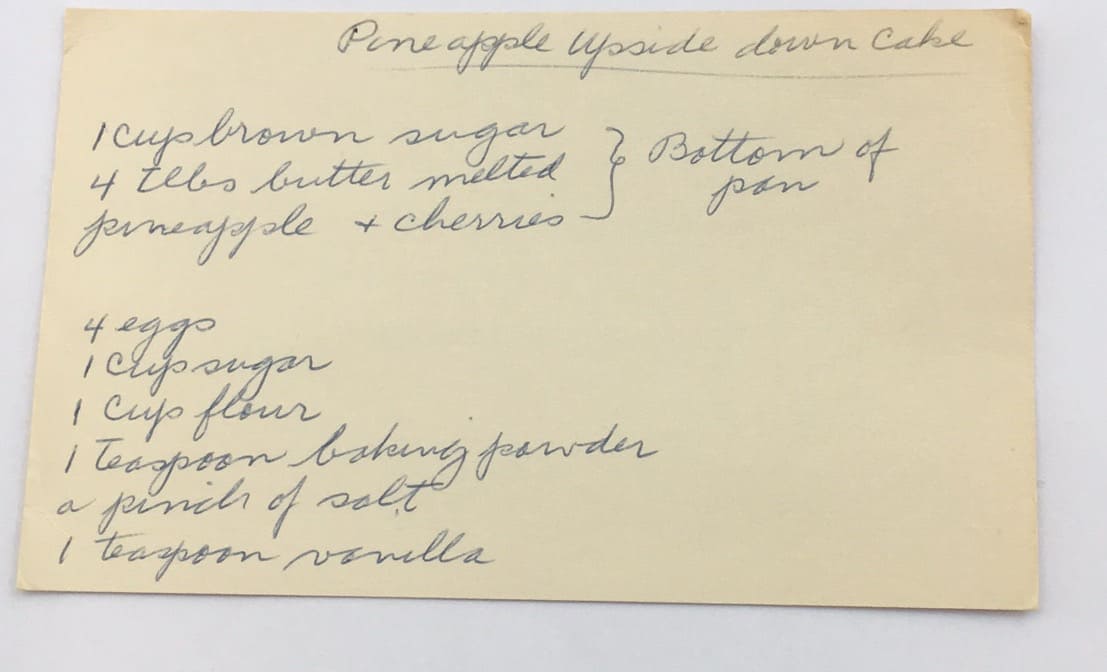 Pineapple Upside down Cake
1 cup brown sugar
4 tlbs butter melted
pineapple + cherries
} Bottom of
pan
4 eggs
1 cup sugar
1 cup flour
1 teaspoon baking powder
a pinch of salt
1 teaspoon vanilla